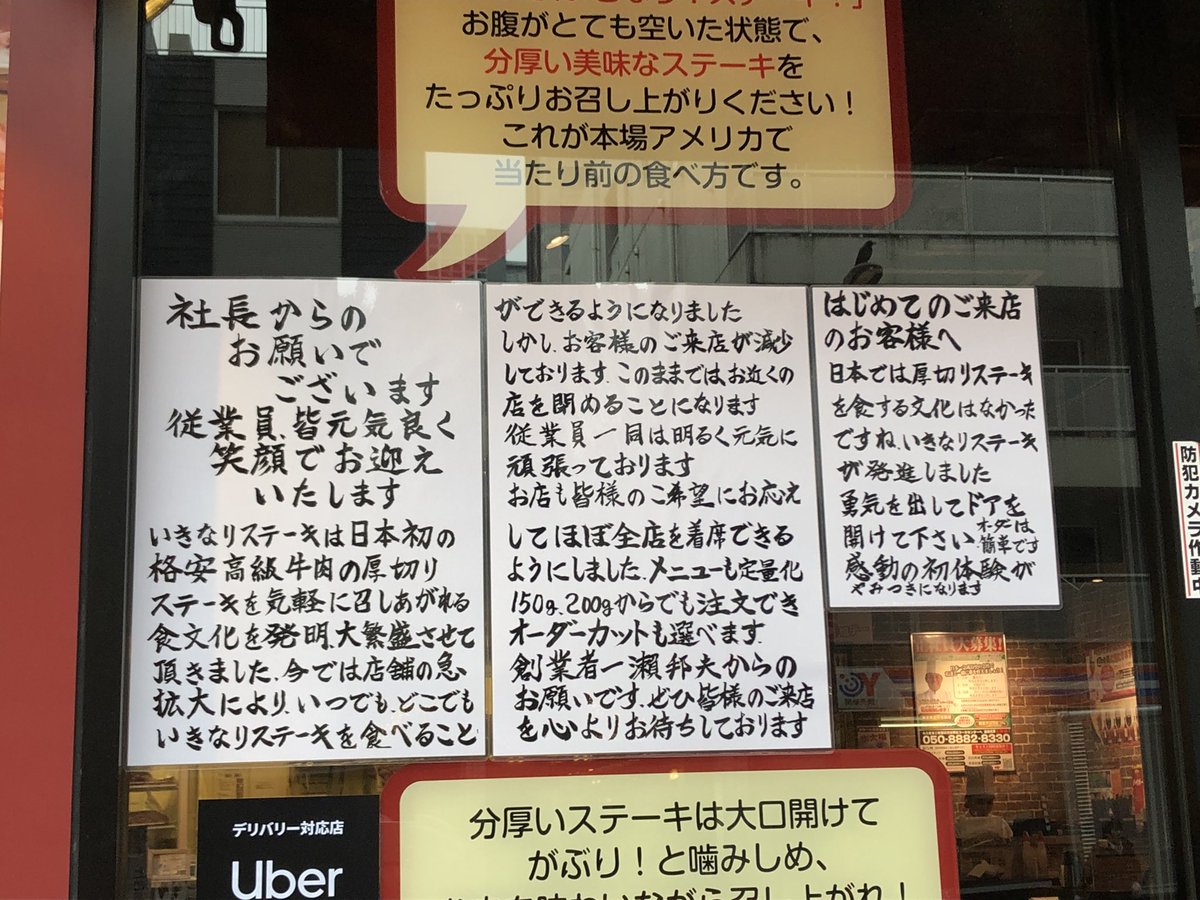 お腹がとても空いた状態で、
分厚い美味なステーキを
たっぷりお召し上がりください！
これが本場アメリカで
当たり前の食べ方です。
社長からの
お願いで
ございます
従業員、皆元気良く
笑顔でお迎え
いたします
いきなりステーキは日本初の
格安高級牛肉の厚切り
ステーキを気軽に召しあがれる
食文化を発明、大繁盛させて
頂きました、今では店舗の急
拡大により、いつでも、どこでも
いきなりステーキを食べること
ができるようになりました
しかし、お客様のご来店が減少
しております、このままではお近くの
店を閉めることになります
従業員一同は明るく元気に
頑張っております
お店も皆様のご希望にお応え
してほぼ全店を着席できる
ようにしました、メニューも定量化
150g、200gからでも注文でき
オーダーカットも選べます、
創業者一瀬邦夫からの
お願いです、ぜひ皆様のご来店
を心よりお待ちしております
はじめてのご来店
のお客様へ
日本では厚切りステーキ
を食する文化はなかった
ですね、いきなりステーキ
が発進しました
勇気を出してドアを
開けて下さい、オーダーは簡単です
感動の初体験が
やみつきになります
防犯カメラ作動中
050-8882-8330
デリバリー対応店
Uber
分厚いステーキは大口開けて
がぶり！と噛みしめ、